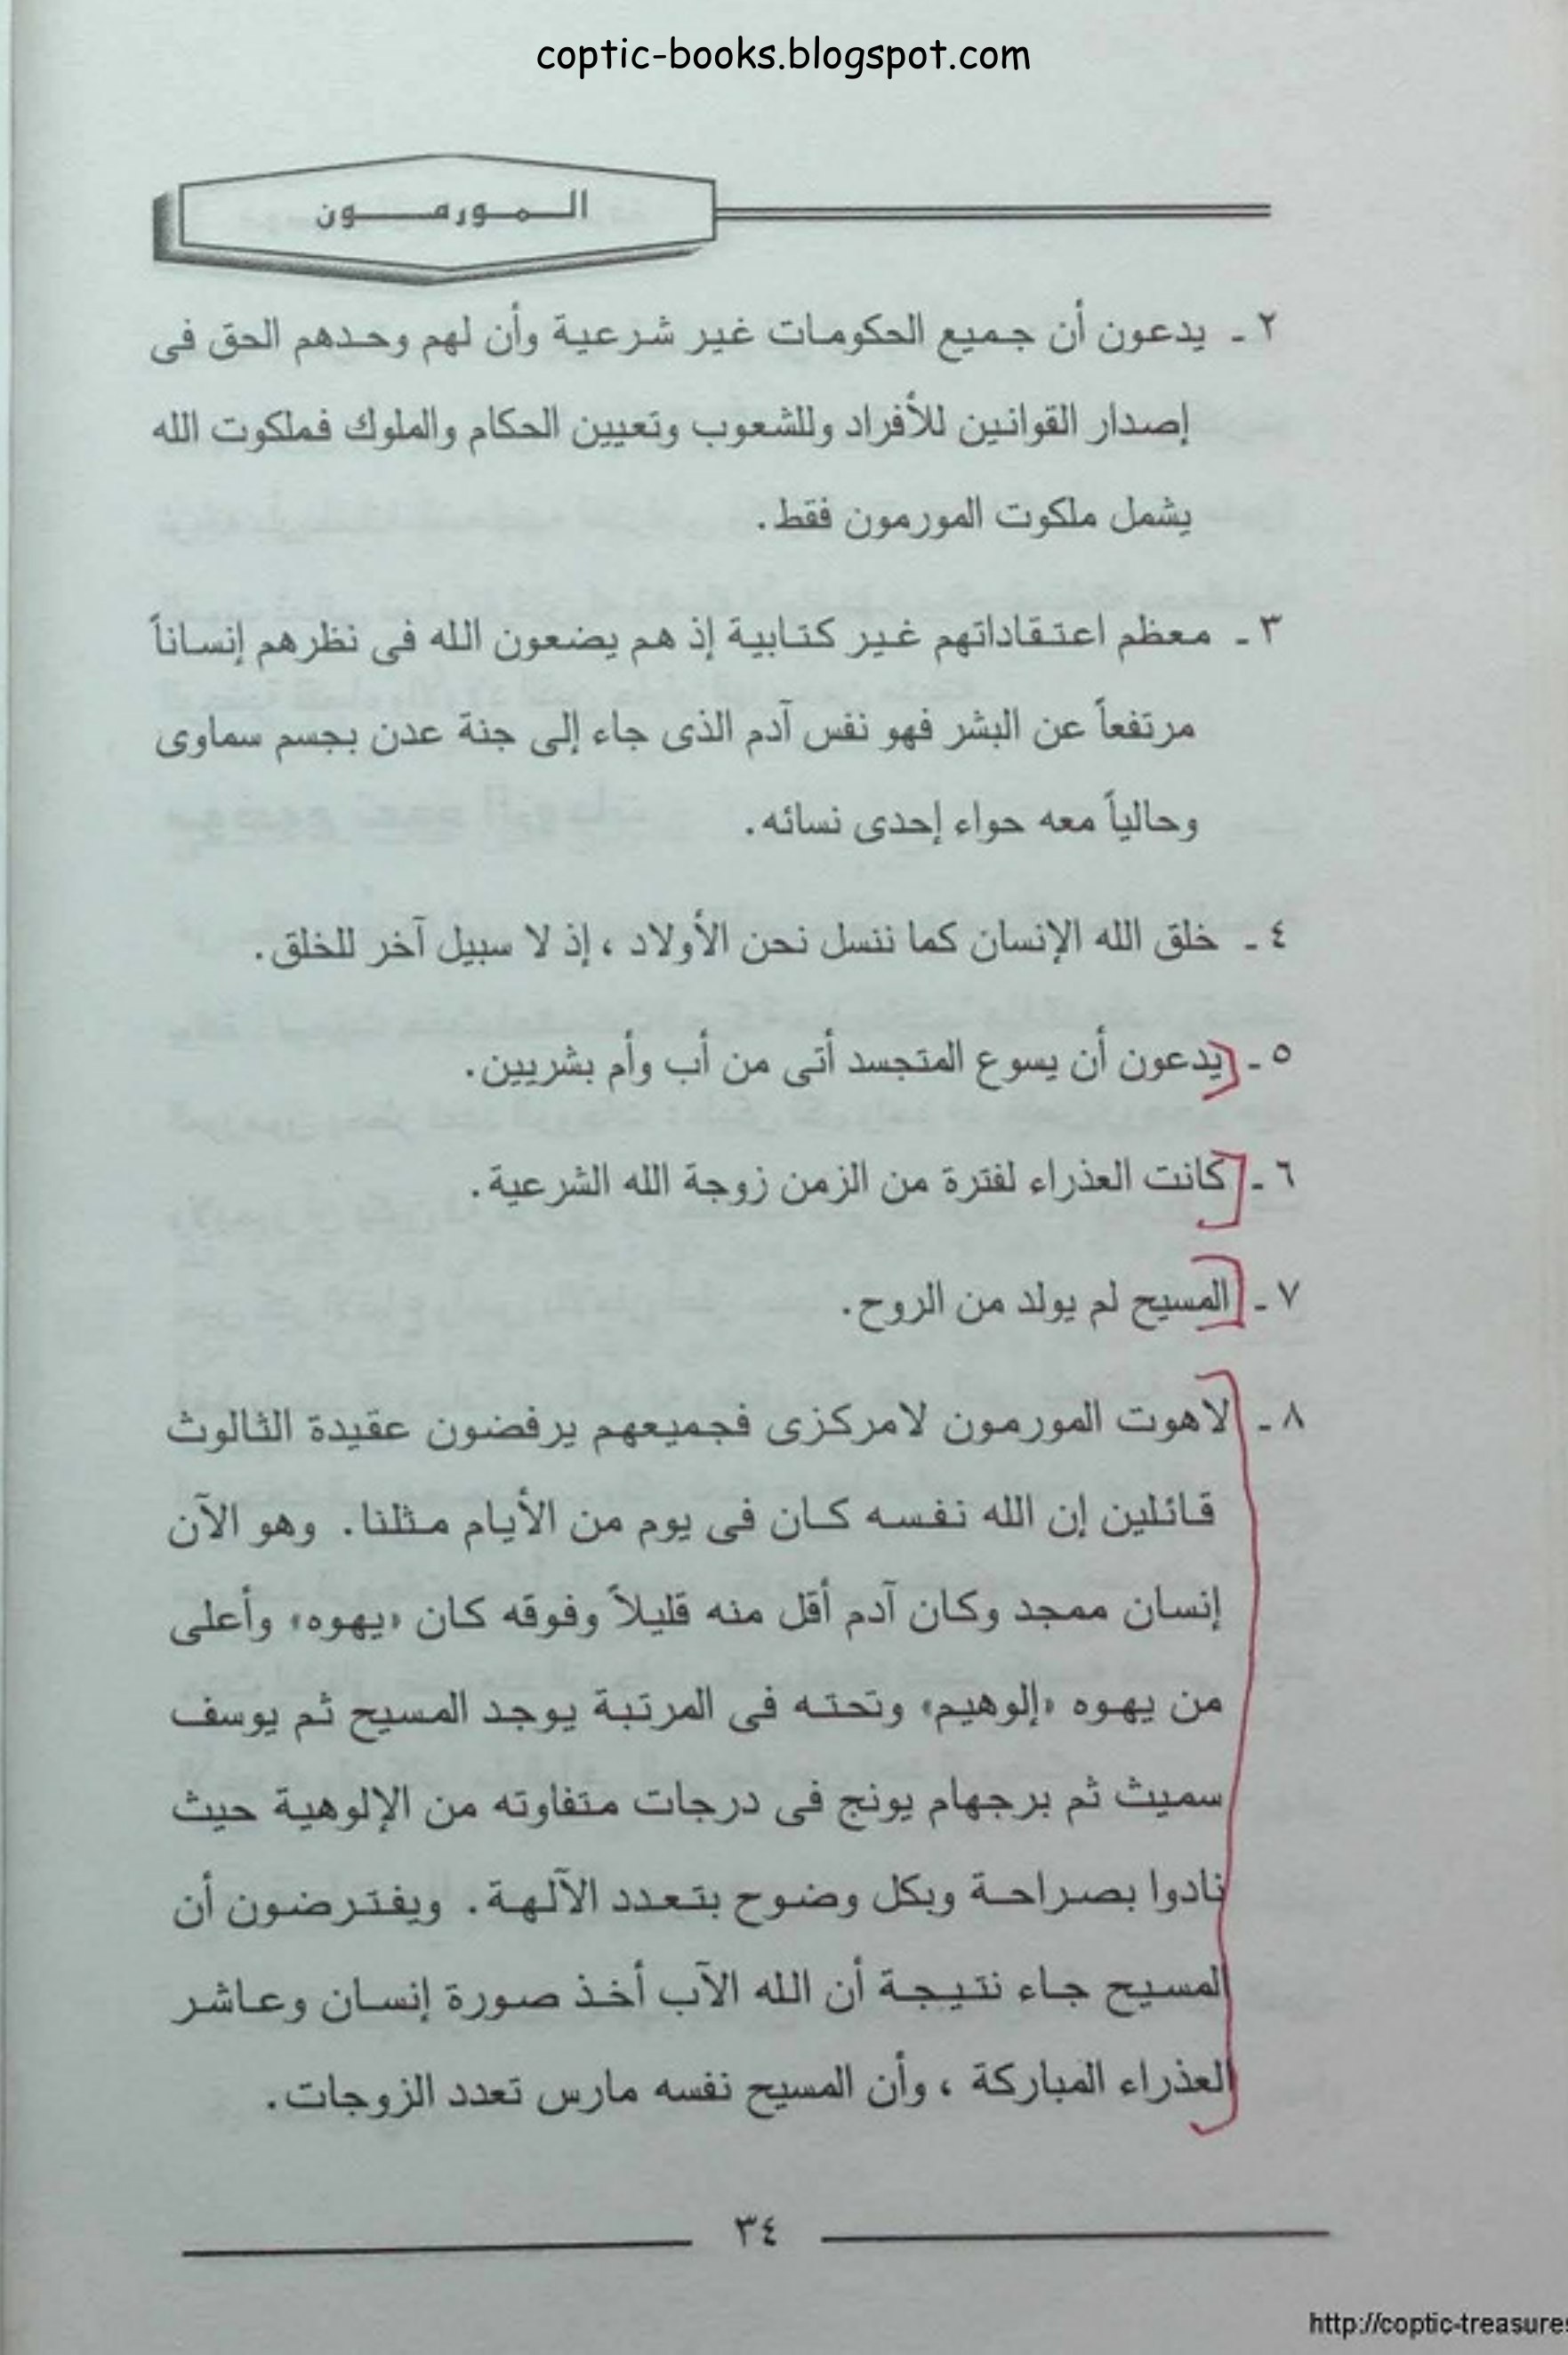 coptic-books.blogspot.com
المورمون
٢ ـ يدعون أن جميع الحكومات غير شرعية وأن لهم وحدهم الحق فى
إصدار القوانين للأفراد وللشعوب وتعيين الحكام والملوك فملكوت الله
يشمل ملكوت المورمون فقط.
٣ ـ معظم اعتقاداتهم غير كتابية إذ هم يضعون الله فى نظرهم إنساناً
مرتفعاً عن البشر فهو نفس آدم الذى جاء إلى جنة عدن بجسم سماوى
وحالياً معه حواء إحدى نسائه.
٤ ـ خلق الله الإنسان كما ننسل نحن الأولاد ، إذ لا سبيل آخر للخلق.
٥ ـ يدعون أن يسوع المتجسد أتى من أب وأم بشريين.
٦ ـ كانت العذراء لفترة من الزمن زوجة الله الشرعية.
٧ ـ المسيح لم يولد من الروح.
٨ ـ لاهوت المورمون لامركزى فجميعهم يرفضون عقيدة الثالوث
قائلين إن الله نفسه كان فى يوم من الأيام مثلنا. وهو الآن
إنسان ممجد وكان آدم أقل منه قليلاً وفوقه كان «يهوه» وأعلى
من يهوه «إلوهيم» وتحته فى المرتبة يوجد المسيح ثم يوسف
سميث ثم برجهام يونج فى درجات متفاوته من الإلوهية حيث
نادوا بصراحة وبكل وضوح بتعدد الآلهة. ويفترضون أن
المسيح جاء نتيجة أن الله الآب أخذ صورة إنسان وعاشر
العذراء المباركة ، وأن المسيح نفسه مارس تعدد الزوجات.
٣٤
http://coptic-treasures